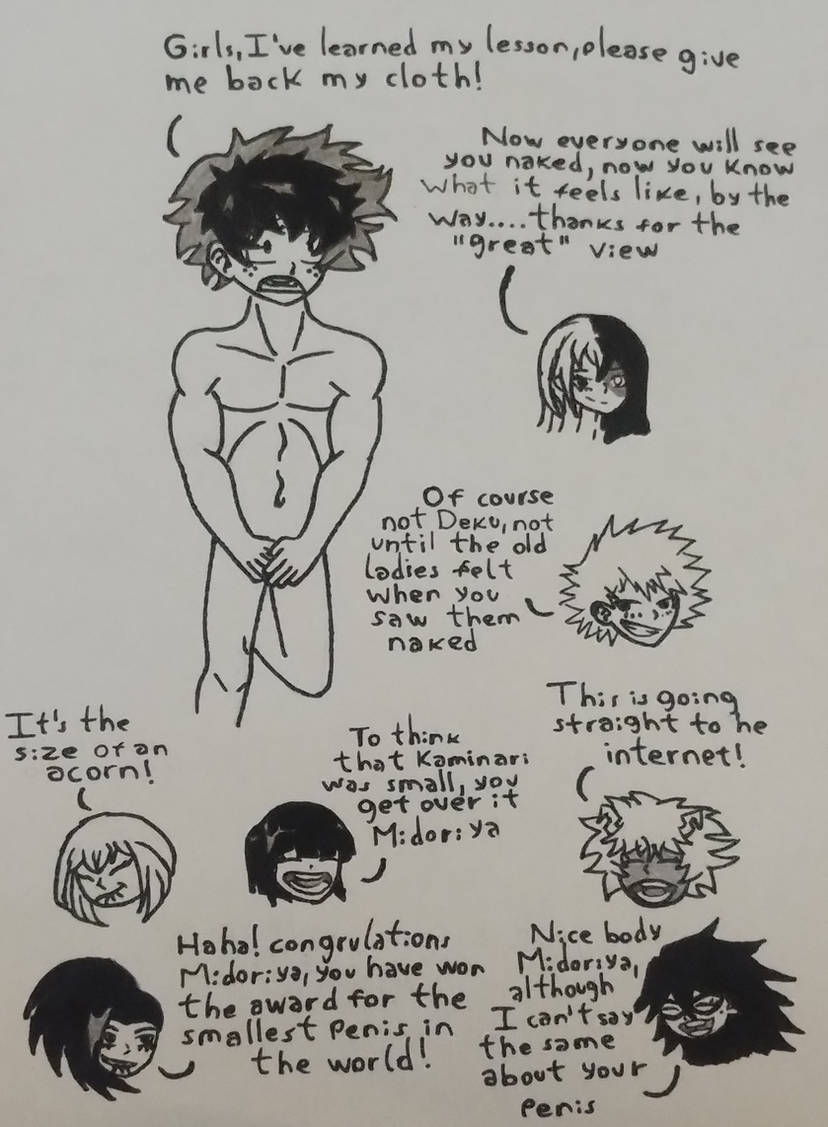 Girls, I've learned my lesson, please give
me back my cloth!
Now everyone will see
you naked, now you know
what it feels like, by the
way.... thanks for the
"great" view
Of course
not Deku, not
until the old
ladies felt
when you
saw them
naked
This is going
straight to he
internet!
It's the
size of an
acorn!
To think
that Kaminari
was small, you
get over it
Midoriya
Haha! congrulations
Midoriya, you have won
the award for the
smallest penis in
the world!
Nice body
Midoriya,
although
I can't say
the same
about your
penis